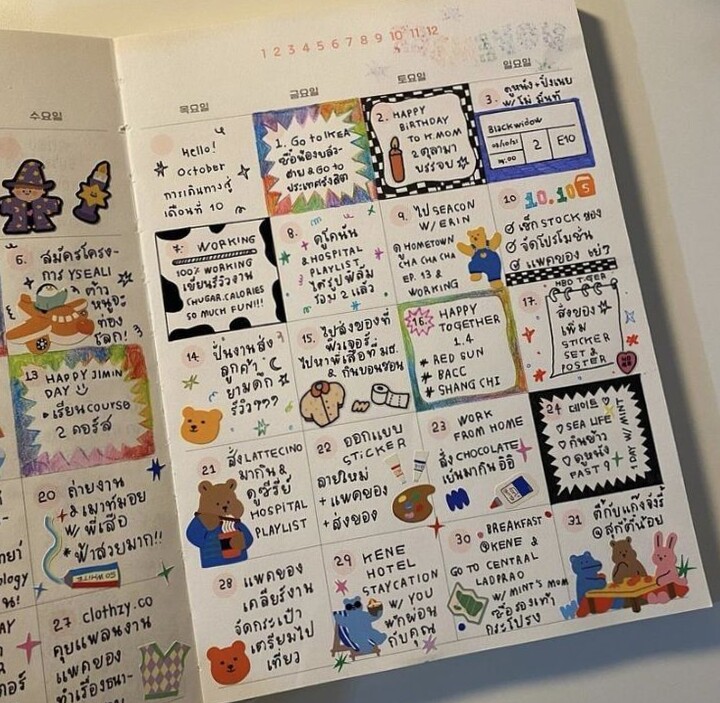 1 2 3 4 5 6 7 8 9 10 11 12
수요일
목요일
금요일
토요일
일요일
Hello!
October
การเดินทางสู่
เดือนที่ 10
1. Go to IKEA
ซื้อของ
& Go to
ประเทศรังสิต
2. HAPPY
BIRTHDAY
TO K.MOM
2 ตุลามา
บรรจบ
3. ดูหนัง+ปิ้งเนย
w/
Blackwidow
03/10/21
14.00
2
E10
6. สมัครโครง-
การ YSEALI
ต้าว
หนูจะ
ท่อง
โลก! 3
7. WORKING
100% WORKING
เขียนรีวิวงาน
CHUGAR.CALORIES
SO MUCH FUN!!!
8. ดูโคนัน
& HOSPITAL
PLAYLIST
ไดรูปฟิล์ม
2 แล้ว
9. ไป SEACON
W/ ERIN
ดู HOMETOWN
CHA CHA CHA
EP. 13 &
WORKING
10 10.10
เช็ก STOCK ของ
จัดโปรโมชั่น
แพคของ
13 HAPPY JIMIN
DAY
เรียน COURSE
2 คอร์ส
14. ปั่นงานส่ง
ลูกค้า
ยามดึก
รีวิว???
15. ไปส่งของที่
ฟิวเจอร์
ไปหาพี่เสือที่ มธ.
& กินขนมชอบ
16. HAPPY
TOGETHER
1.4
RED SUN
BACC
SHANG CHI
HBD TIGER
17. สั่งของ
เพิ่ม
STICKER
SET &
POSTER
20 ถ่ายงาน
& เมาท์มอย
w/ พี่เสือ
ฟ้าสวยมาก!!
21 สั่ง LATTECINO
มากิน &
ดูซีรีย์
HOSPITAL
PLAYLIST
22 ออกแบบ
STICKER
ลายใหม่
+ แพคของ
+ ส่งของ
23 WORK
FROM HOME
สั่ง CHOCOLATE
เย็นมากิน อิอิ
24 데이트 ♡
SEA LIFE
กินข้าว
ดูหนัง
FAST 9
1 DAY W/ MINT
27 clothzy.co
คุยแพลนงาน
แพคของ
ทำเรื่องธนา-
28 แพคของ
เคลียร์งาน
จัดกระเป๋า
เตรียมไป
เที่ยว
29 KENE
HOTEL
STAYCATION
W/ YOU
พักผ่อน
กับคุณ
30 BREAKFAST
@KENE &
GO TO CENTRAL
LADPRAO
W/ MINT'S MOM
ซื้อรองเท้า
กระโปรง
31 ตี้กับแก๊งจังรี่
@สุกี้ตี๋น้อย